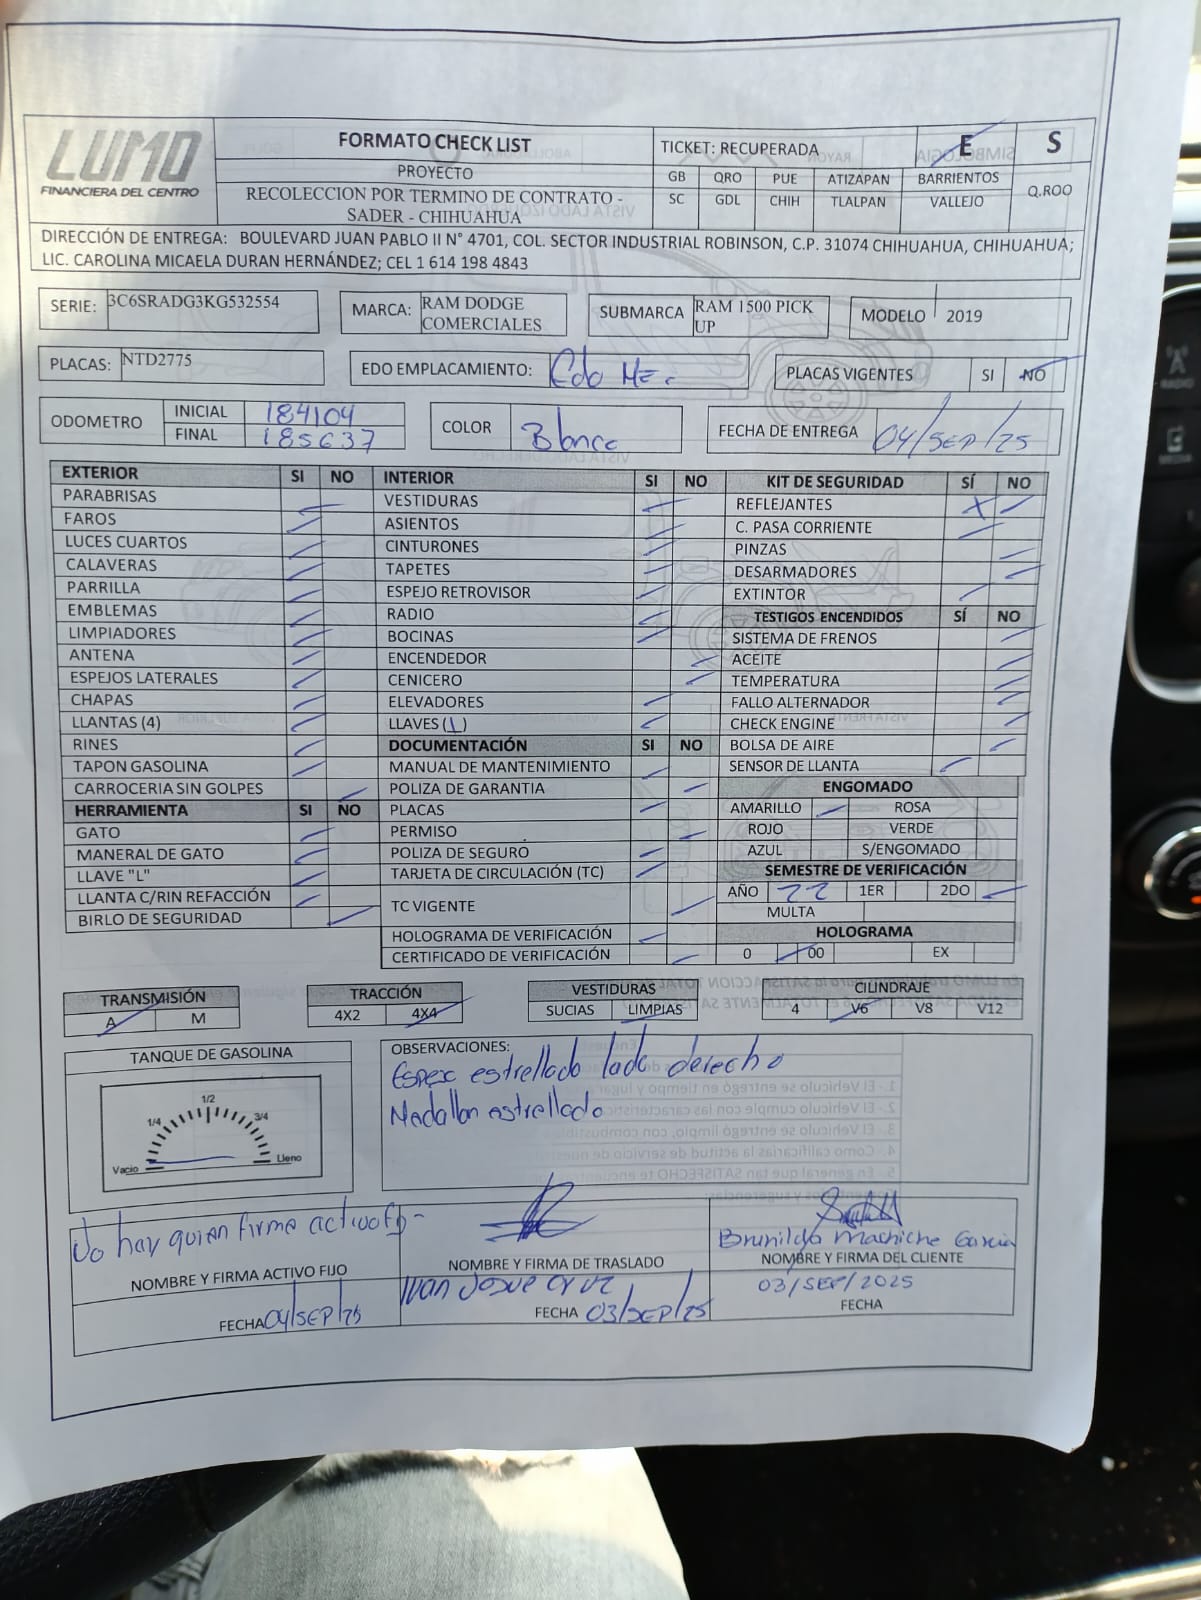 LUMO
FINANCIERA DEL CENTRO
FORMATO CHECK LIST
PROYECTO
RECOLECCION POR TERMINO DE CONTRATO -
SADER - CHIHUAHUA
TICKET: RECUPERADA
E
S
GB QRO PUE ATIZAPAN BARRIENTOS
SC GDL CHIH TLALPAN VALLEJO
Q.ROO
DIRECCIÓN DE ENTREGA: BOULEVARD JUAN PABLO II N° 4701, COL. SECTOR INDUSTRIAL ROBINSON, C.P. 31074 CHIHUAHUA, CHIHUAHUA;
LIC. CAROLINA MICAELA DURAN HERNÁNDEZ; CEL 1 614 198 4843
SERIE: 3C6SRADG3KG532554
MARCA: RAM DODGE
COMERCIALES
SUBMARCA RAM 1500 PICK
UP
MODELO 2019
PLACAS: NTD2775
EDO EMPLACAMIENTO: Edo Mex.
PLACAS VIGENTES SI NO
ODOMETRO
INICIAL 184104
FINAL 185637
COLOR Blanco
FECHA DE ENTREGA 04/SEP/25
EXTERIOR SI NO
PARABRISAS
FAROS
LUCES CUARTOS
CALAVERAS
PARRILLA
EMBLEMAS
LIMPIADORES
ANTENA
ESPEJOS LATERALES
CHAPAS
LLANTAS (4)
RINES
TAPON GASOLINA
CARROCERIA SIN GOLPES
HERRAMIENTA SI NO
GATO
MANERAL DE GATO
LLAVE "L"
LLANTA C/RIN REFACCIÓN
BIRLO DE SEGURIDAD
INTERIOR SI NO
VESTIDURAS
ASIENTOS
CINTURONES
TAPETES
ESPEJO RETROVISOR
RADIO
BOCINAS
ENCENDEDOR
CENICERO
ELEVADORES
LLAVES (1)
DOCUMENTACIÓN SI NO
MANUAL DE MANTENIMIENTO
POLIZA DE GARANTIA
PLACAS
PERMISO
POLIZA DE SEGURO
TARJETA DE CIRCULACIÓN (TC)
TC VIGENTE
HOLOGRAMA DE VERIFICACIÓN
CERTIFICADO DE VERIFICACIÓN
KIT DE SEGURIDAD SÍ NO
REFLEJANTES X
C. PASA CORRIENTE
PINZAS
DESARMADORES
EXTINTOR
TESTIGOS ENCENDIDOS SÍ NO
SISTEMA DE FRENOS
ACEITE
TEMPERATURA
FALLO ALTERNADOR
CHECK ENGINE
BOLSA DE AIRE
SENSOR DE LLANTA
ENGOMADO
AMARILLO ROSA
ROJO VERDE
AZUL S/ENGOMADO
SEMESTRE DE VERIFICACIÓN
AÑO 22 1ER 2DO
MULTA
HOLOGRAMA
0 00 EX
TRANSMISIÓN
A M
TRACCIÓN
4X2 4X4
VESTIDURAS
SUCIAS LIMPIAS
CILINDRAJE
4 V6 V8 V12
TANQUE DE GASOLINA
1/2
1/4 3/4
Vacio Lleno
OBSERVACIONES:
estrellado lado derecho
Medallon estrellado
No hay quien firme activo
NOMBRE Y FIRMA ACTIVO FIJO
FECHA 04/SEP/25
NOMBRE Y FIRMA DE TRASLADO
Ivan Josue Cruz
FECHA 03/SEP/25
Brunilda Machiche Garcia
NOMBRE Y FIRMA DEL CLIENTE
03/SEP/2025
FECHA
RADIO
MEDIA